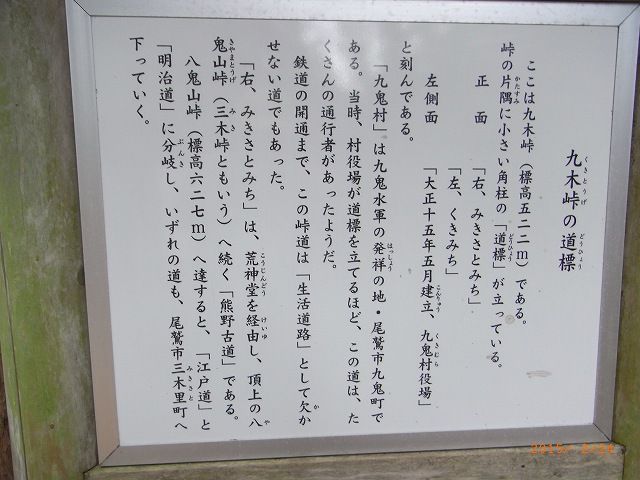 九木峠の道標
ここは九木峠（標高五二二m）である。
峠の片隅に小さい角柱の「道標」が立っている。
正面　「右、みきさとみち」
「左、くきみち」
左側面　「大正十五年五月建立、九鬼村役場」
と刻んである。
「九鬼村」は九鬼水軍の発祥の地・尾鷲市九鬼町で
ある。当時、村役場が道標を立てるほど、この道は、た
くさんの通行者があったようだ。
鉄道の開通まで、この峠道は「生活道路」として欠か
せない道でもあった。
「右、みきさとみち」は、荒神堂を経由し、頂上の八
鬼山峠（三木峠ともいう）へ続く「熊野古道」である。
八鬼山峠（標高六二七m）へ達すると、「江戸道」と
「明治道」に分岐し、いずれの道も、尾鷲市三木里町へ
下っていく。